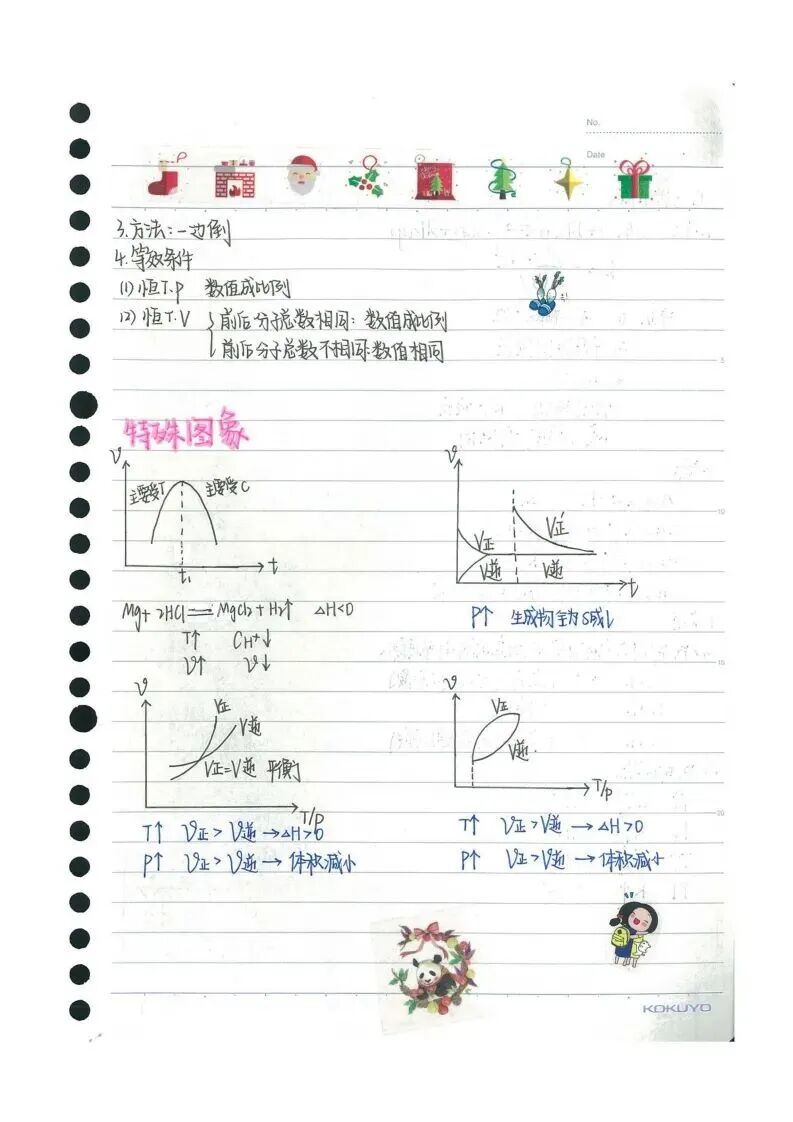 No.
Date
3.方法:一边倒
4.等效条件
(1)恒T.p 数值成比例
(2)恒T.V {前后分子总数相同:数值成比例
前后分子总数不相同:数值相同
特殊图象
v
主要受T 主要受C
t₁
t
v
V正
V逆
V正'
V逆
t
Mg+2HCl══MgCl2+H2↑ △H<0
T↑ CH+↓
v↑ v↓
P↑ 生成物全为S或l
v
V正
V逆
V正=V逆 平衡
T/p
v
V正
V逆
T/p
T↑ v正>v逆→△H>0
P↑ v正>v逆→体积减小
T↑ v正>v逆→△H>0
P↑ v正>v逆→体积减小
5
10
15
20
KOKUYO